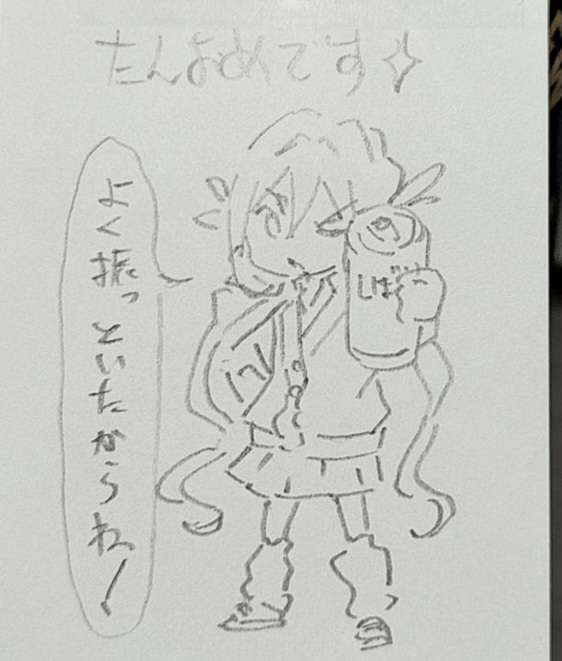 たんおめです
よく振っといたからね!
しば